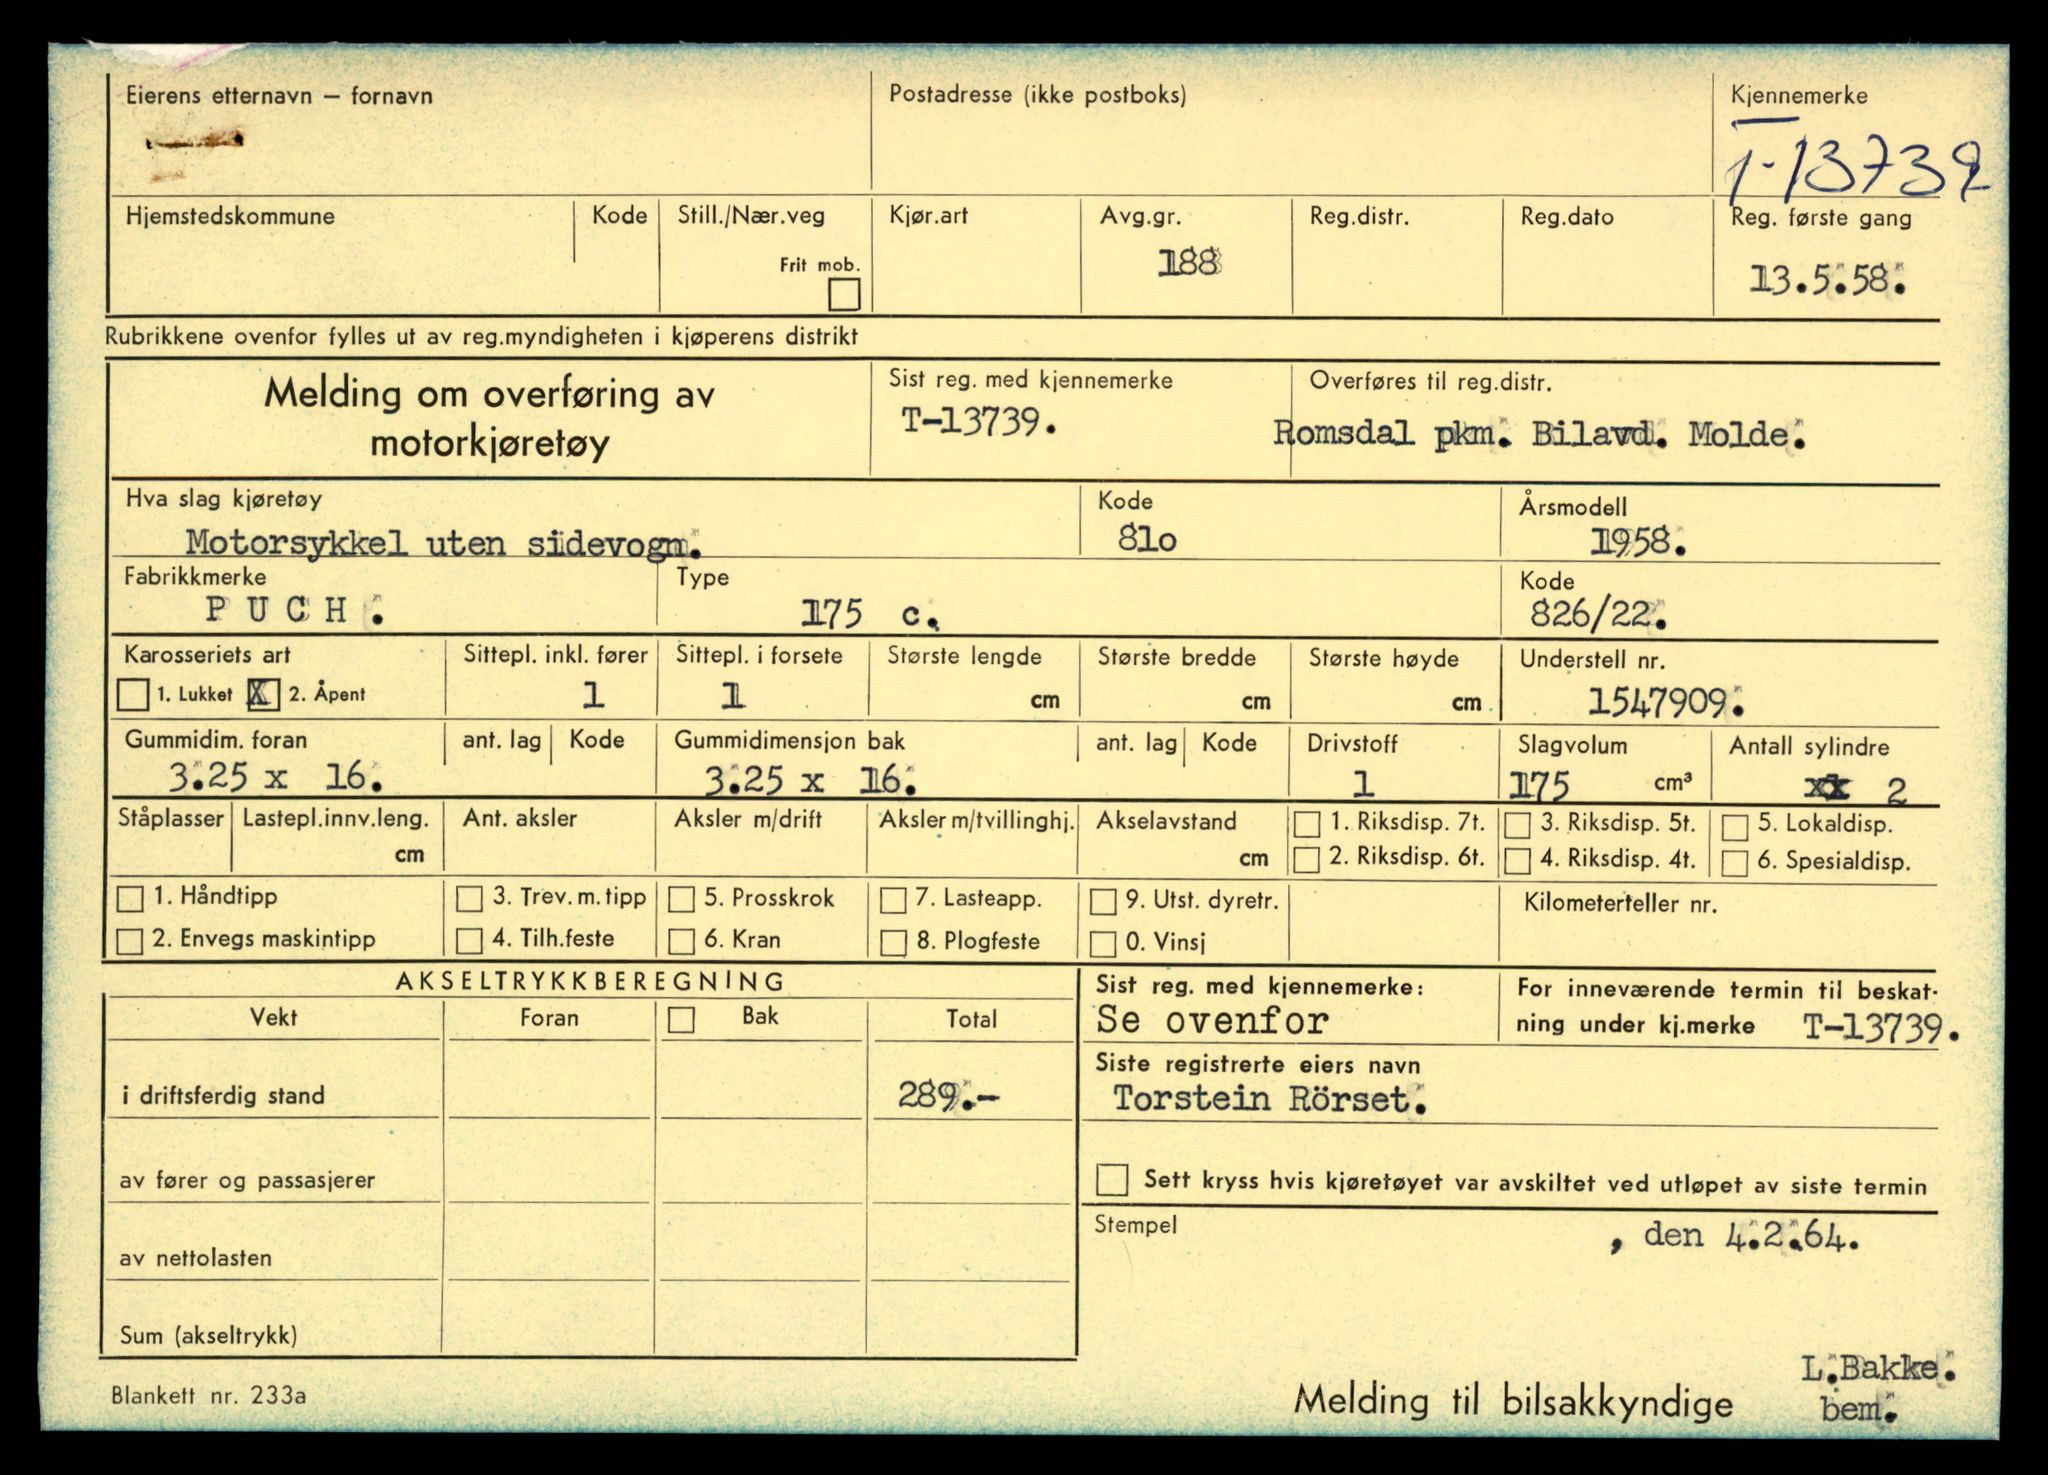 Eierens etternavn — fornavn
Postadresse (ikke postboks)
Kjennemerke
T-13739
Hjemstedskommune
Kode
Still./Nær.veg
Frit mob.
Kjør.art
Avg.gr.
188
Reg.distr.
Reg.dato
Reg. første gang
13.5.58.
Rubrikkene ovenfor fylles ut av reg.myndigheten i kjøperens distrikt
Melding om overføring av
motorkjøretøy
Sist reg. med kjennemerke
T-13739.
Overføres til reg.distr.
Romsdal pkm. Bilavd. Molde.
Hva slag kjøretøy
Motorsykkel uten sidevogn.
Kode
81o
Årsmodell
1958.
Fabrikkmerke
P U C H .
Type
175 c.
Kode
826/22.
Karosseriets art
1. Lukket X 2. Åpent
Sittepl. inkl. fører
1
Sittepl. i forsete
1
Største lengde
cm
Største bredde
cm
Største høyde
cm
Understell nr.
1547909.
Gummidim. foran
3.25 x 16.
ant. lag
Kode
Gummidimensjon bak
3.25 x 16.
ant. lag
Kode
Drivstoff
1
Slagvolum
175 cm³
Antall sylindre
xx 2
Ståplasser
Lastepl.innv.leng.
cm
Ant. aksler
Aksler m/drift
Aksler m/tvillinghj.
Akselavstand
cm
1. Riksdisp. 7t.
2. Riksdisp. 6t.
3. Riksdisp. 5t.
4. Riksdisp. 4t.
5. Lokaldisp.
6. Spesialdisp.
1. Håndtipp
2. Envegs maskintipp
3. Trev. m. tipp
4. Tilh.feste
5. Prosskrok
6. Kran
7. Lasteapp.
8. Plogfeste
9. Utst. dyretr.
0. Vinsj
Kilometerteller nr.
AKSELTRYKKBEREGNING
Vekt
Foran
Bak
Total
i driftsferdig stand
289.-
av fører og passasjerer
av nettolasten
Sum (akseltrykk)
Sist reg. med kjennemerke:
Se ovenfor
For inneværende termin til beskat-
ning under kj.merke T-13739.
Siste registrerte eiers navn
Torstein Rörset.
Sett kryss hvis kjøretøyet var avskiltet ved utløpet av siste termin
Stempel
, den 4.2.64.
L.Bakke.
bem.
Blankett nr. 233a
Melding til bilsakkyndige